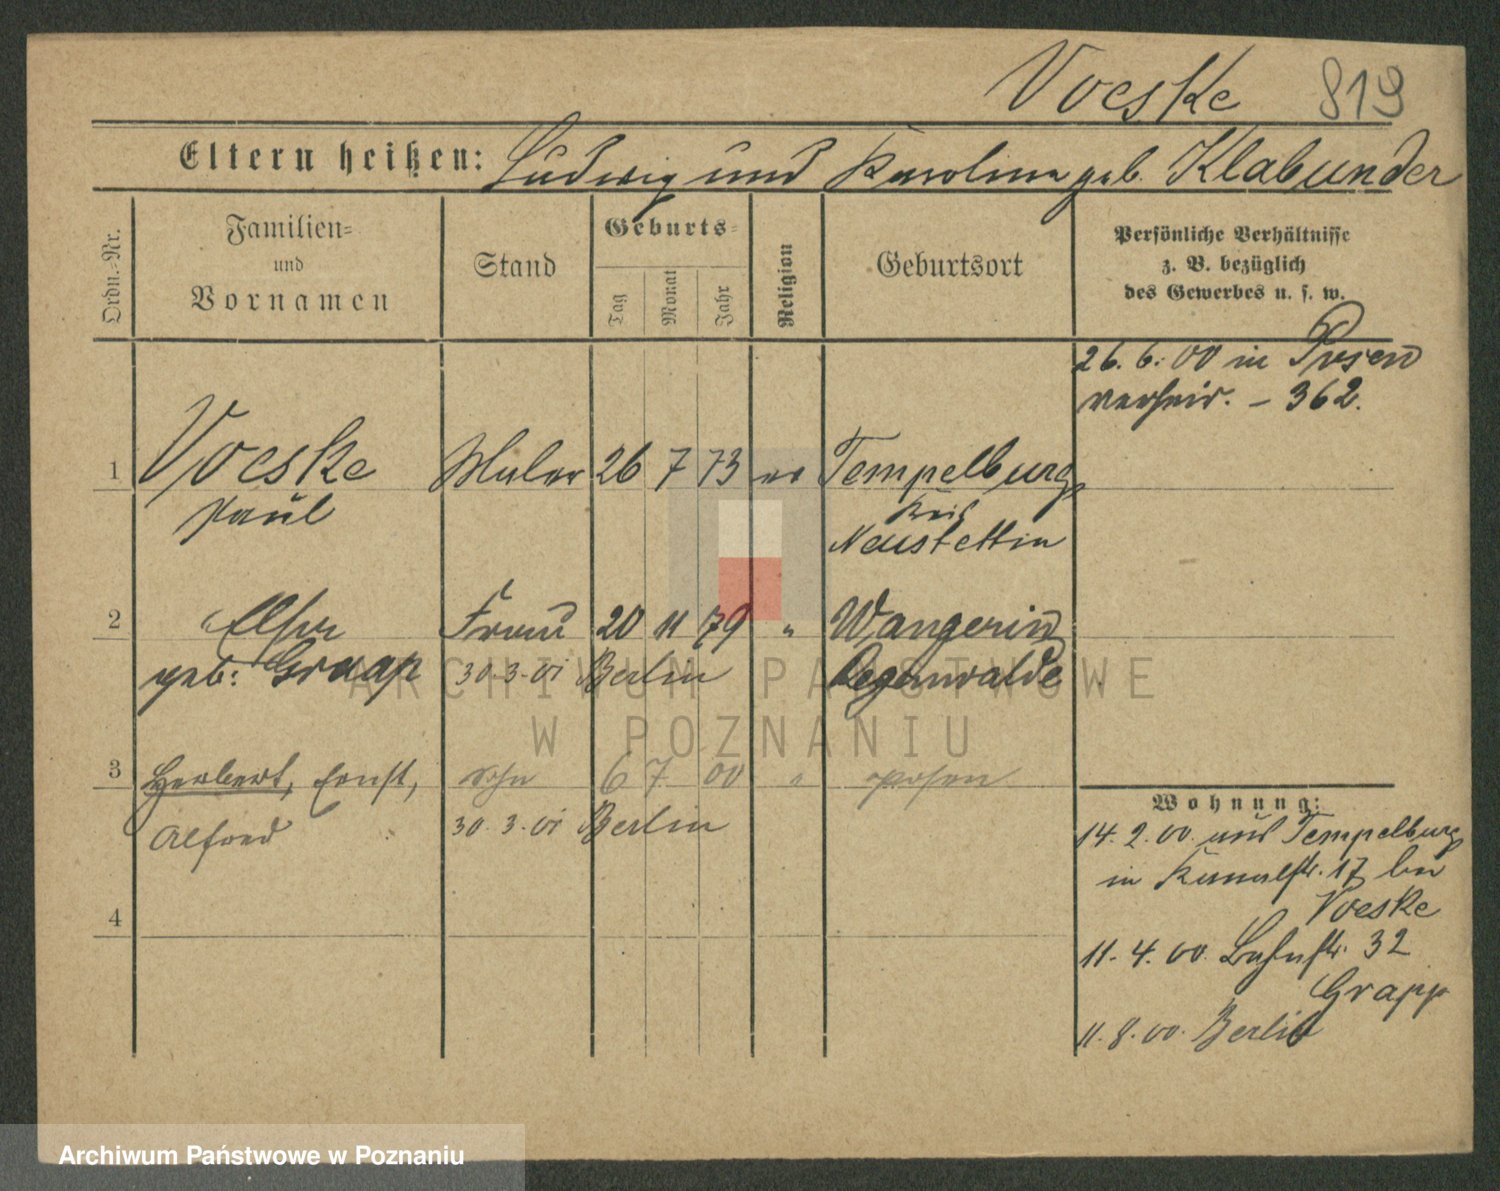 Voeske 819
Eltern heißen: Ludwig und Karolina geb. Klabunder
Ordn.-Nr.
Familien-
und
Vornamen
Stand
Geburts-
Tag
Monat
Jahr
Religion
Geburtsort
Persönliche Verhältnisse
z. B. bezüglich
des Gewerbes u. s. w.
26. 6. 00 in Posen
verheir. – 362.
1 Voeske Maler 26 7 73 ev Tempelburg
Paul
Kreis
Neustettin
2 Else Frau 20 11 79 " Wangerin
geb. Graap 30.3.01 Berlin Regenwalde
3 Herbert, Ernst, Sohn 6 7 00 " Posen
Alfred 30.3.01 Berlin
4
Wohnung:
14. 2. 00. aus Tempelburg
in Kanalstr. 17 bei
Voeske
11. 4. 00. Bahnstr. 32
Grapp
11. 8. 00. Berlin
ARCHIWUM PAŃSTWOWE
W POZNANIU
Archiwum Państwowe w Poznaniu